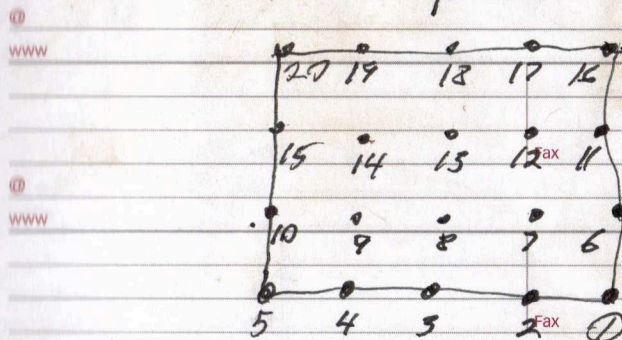 @
www
20 19 18 17 16
15 14 13 12 Fax 11
@
www
10 9 8 7 6
5 4 3 2 Fax 1